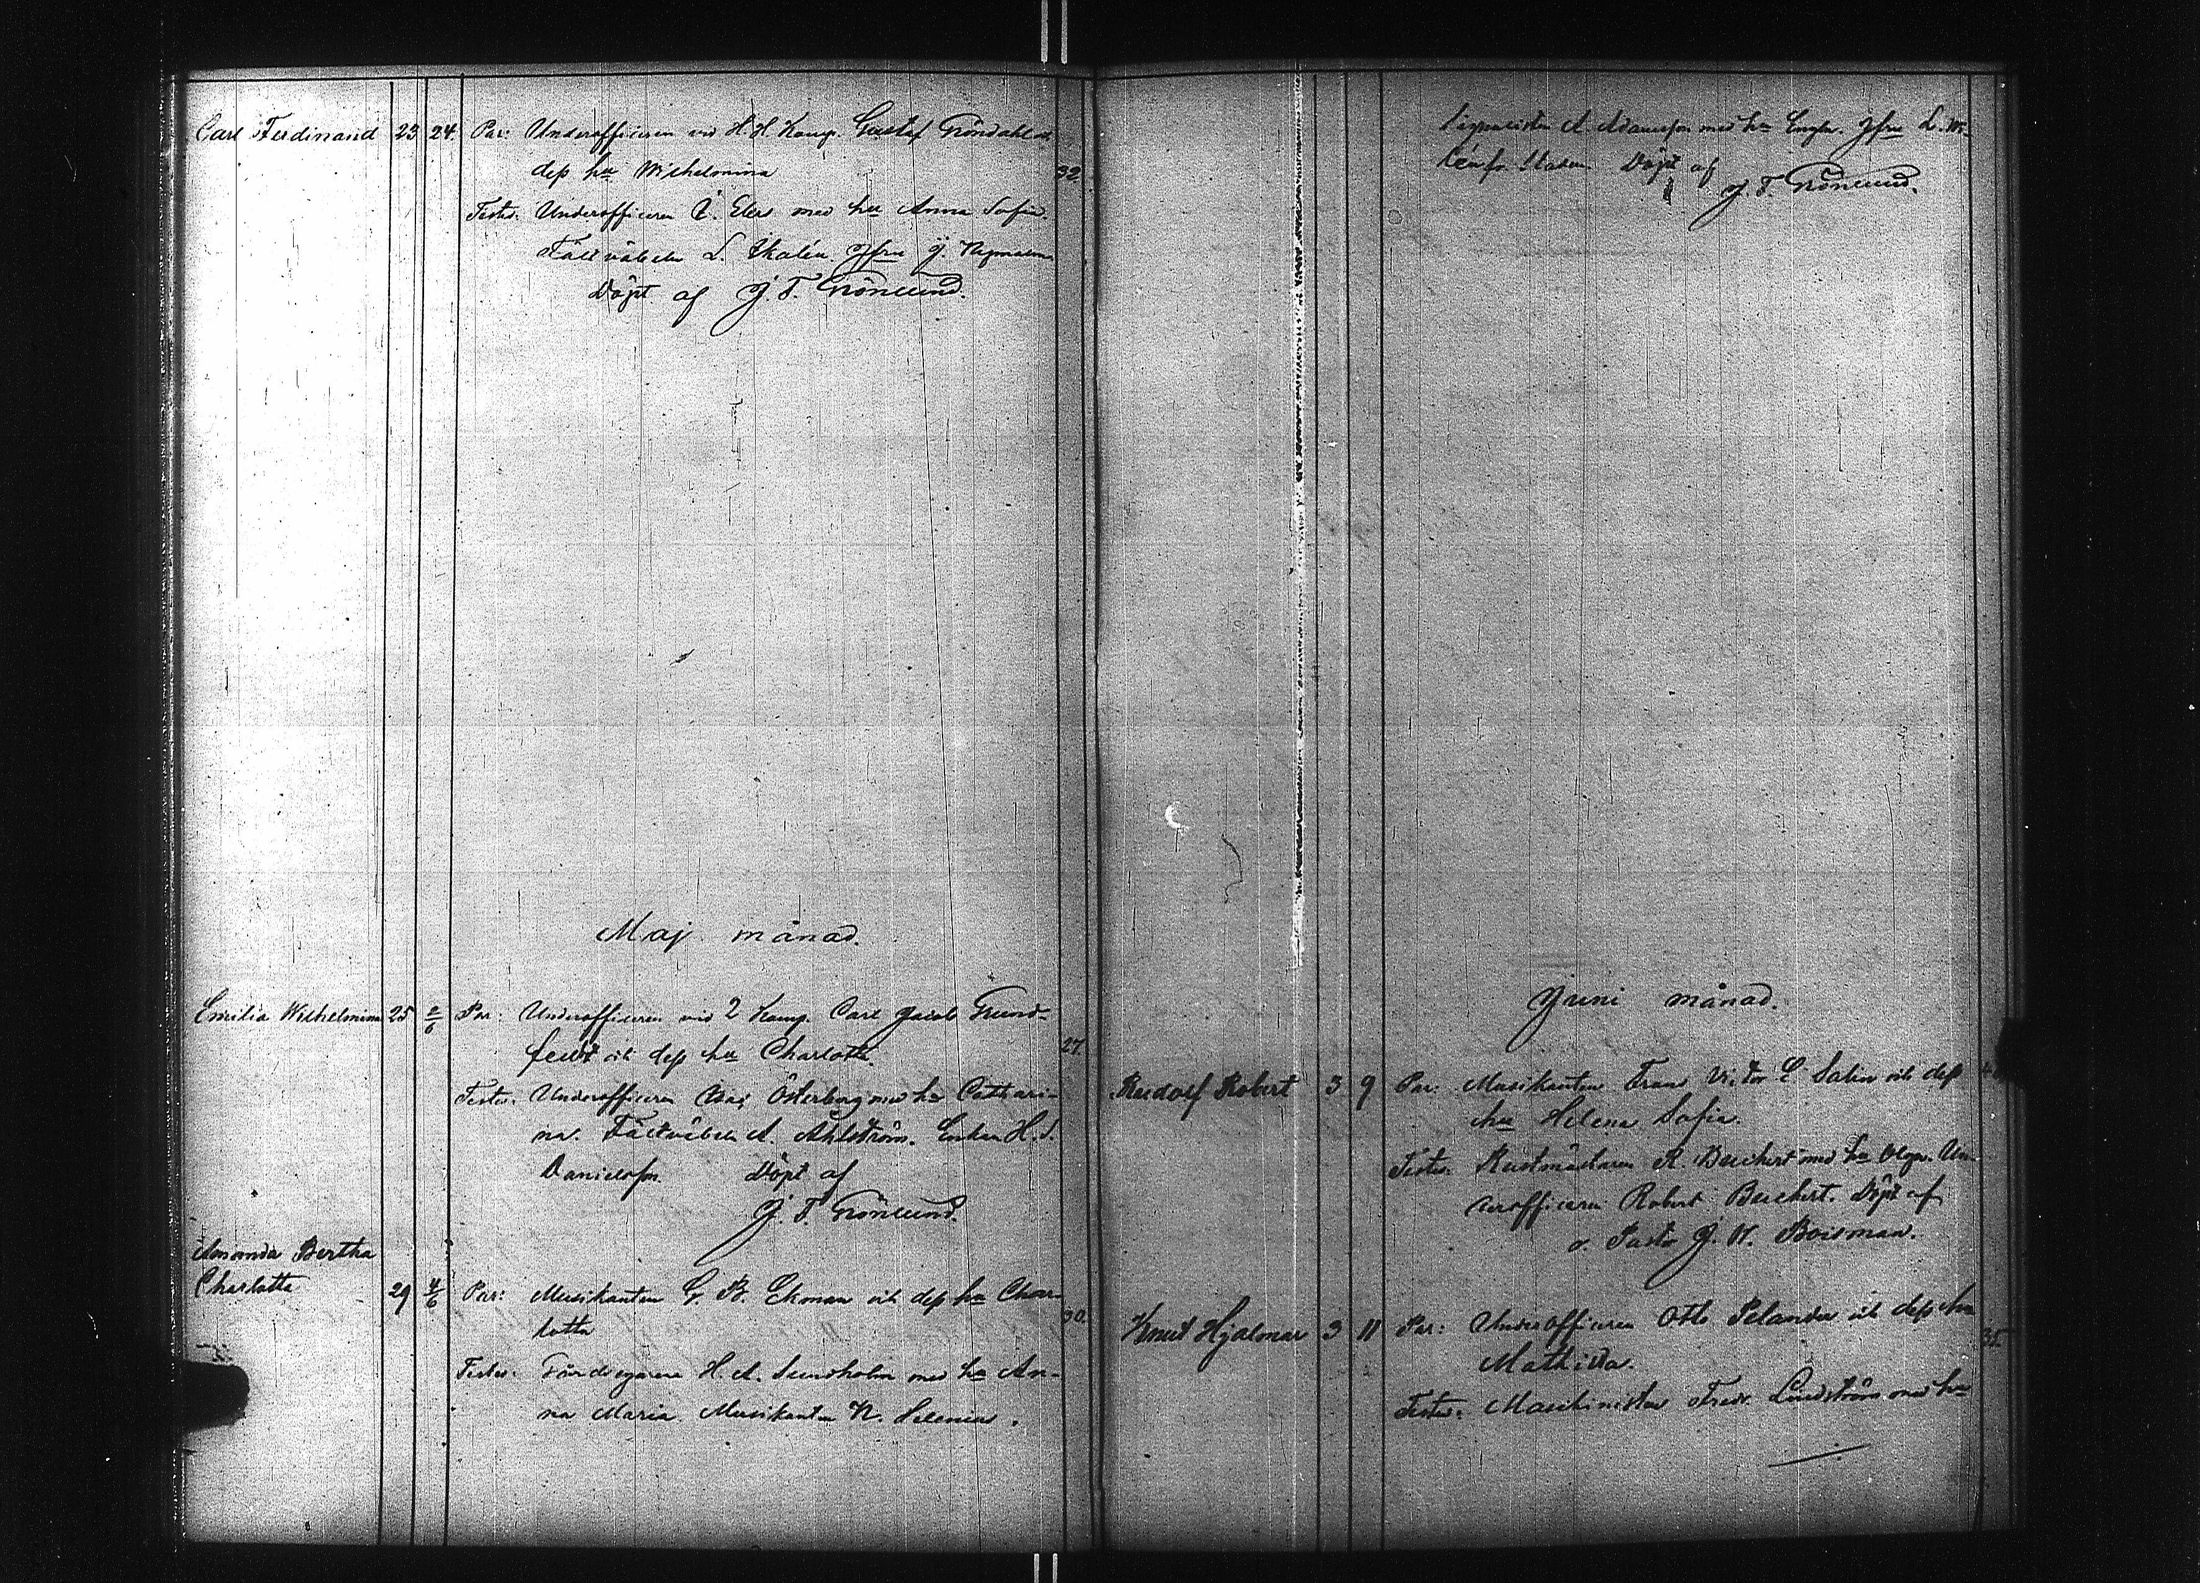 Carl Ferdinand 23 24. Par: Underofficeren vid H. H. Komp. Gustaf Gröndahl o.
dess hu Wilhelmina 32.
Testes. Underofficeren Elers med hu Anna Sofia.
Fältväbeln L. Jfru J.
Döpt af J. F. Grönlund.
Maj månad.
Emilia Wilhelmina 25 2/6 Par: Underofficeren vid 2 Komp. Carl Jacob Grund-
feldt och dess hu Charlotta. 27.
Testes. Underofficeren Österberg med hu Cathari-
na. Fältväbeln A. Ahlström. Enkan H. S.
Danielsson. Döpt af
J. F. Grönlund.
Amanda Bertha
Charlotta 29 4/6 Par: Musikanten G. B. Ekman och dess hu Char-
lotta 30.
Testes. H. A. Sundholm med hu An-
na Maria Musikanten N. Helenius.
Signalisten A. Adamsson med hu Jfru L.
Döpt af
J. F. Grönlund.
Juni månad.
Rudolf Robert 3 9 Par: Musikanten Frans Victor E. Salin och dess
hu Helena Sofia.
Testes. Rustmästaren R. Beuckert med hu Olga. Un-
derofficeren Robert Beuckert. Döpt af
v. Pastor J. W. Boisman.
Knut Hjalmar 3 11 Par: Underofficeren Otto Pelander och dess hu
Mathilda. 35.
Testes. Maschinisten Fredr. Lindström med hu